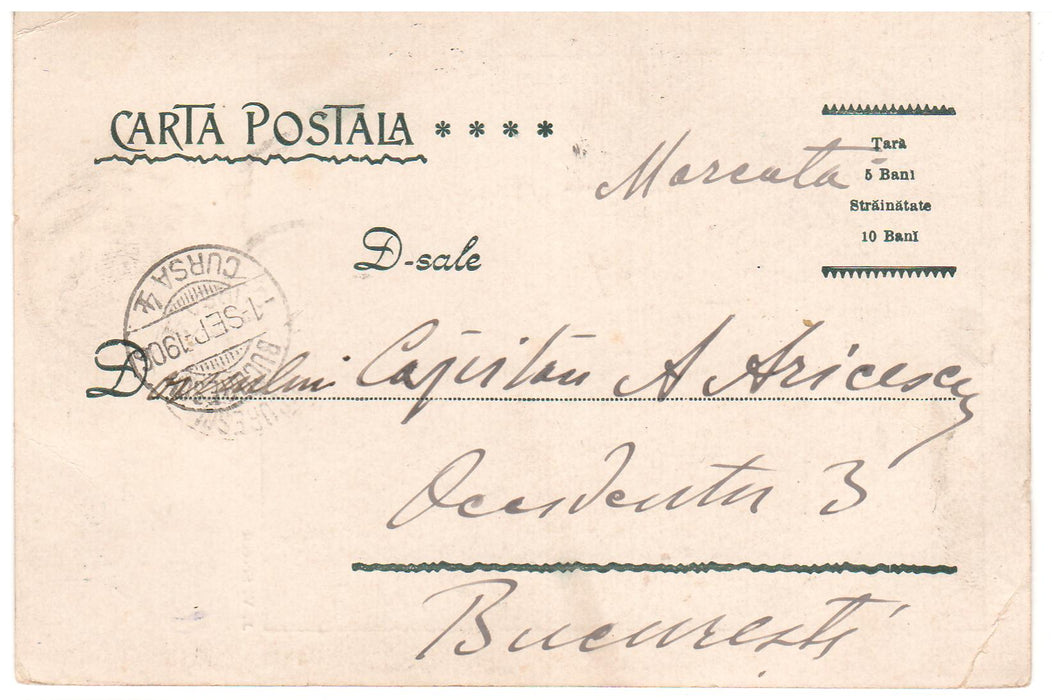 CARTA POSTALA ****
Marcata
Țară
5 Bani
Străinătate
10 Bani
D-sale
CURSA 4
-1-SEP-190
BUCURESCI
Domnului Capitan A Aricescu
Occidentu 3
București